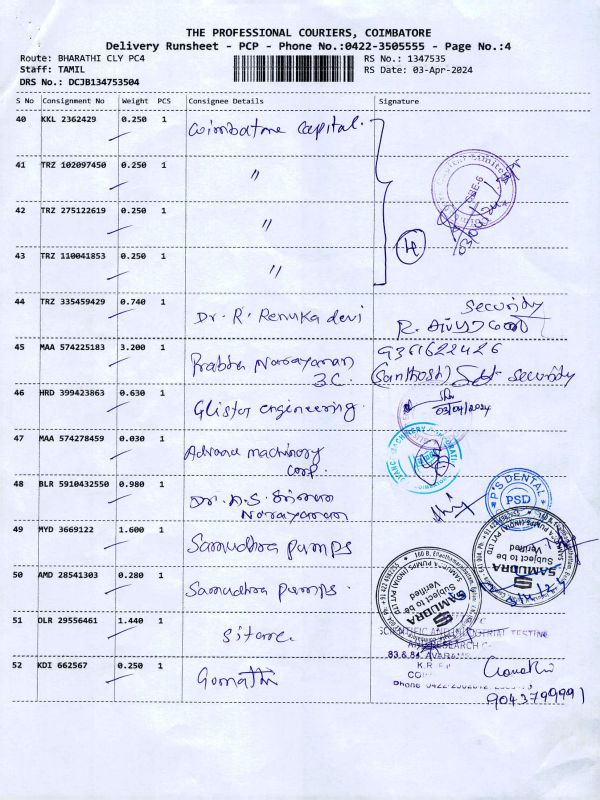 THE PROFESSIONAL COURIERS, COIMBATORE
Delivery Runsheet - PCP - Phone No.:0422-3505555 - Page No.:4
Route: BHARATHI CLY PC4
RS No.: 1347535
Staff: TAMIL
RS Date: 03-Apr-2024
DRS No.: DCJB134753504
S No Consignment No Weight PCS Consignee Details Signature
40 KKL 2362429 0.250 1 Coimbatore Capital.
41 TRZ 102097450 0.250 1 "
42 TRZ 275122619 0.250 1 "
4
43 TRZ 110041853 0.250 1 "
44 TRZ 335459429 0.740 1 Dr. R. Renuka devi
Security
R.
45 MAA 574225183 3.200 1 Prabha Narayanan
3C.
9361622426
(Santhosh) security
46 HRD 399423863 0.630 1 Glister engineering.
03/04/2024
47 MAA 574278459 0.030 1 Advance machinery
corp.
48 BLR 5910432550 0.980 1 Dr. A.S.
Narayanan
P'S DENTAL
PSD
49 MYD 3669122 1.600 1 Samudhra pumps
SAMUDRA
Subject to be
Verified
50 AMD 28541303 0.280 1 Samudhra pumps.
SAMUDRA
Subject to be
Verified
51 DLR 29556461 1.440 1 Sitarc
SCIENTIFIC AND INDUSTRIAL TESTING
52 KDI 662567 0.250 1 Gomathi
9043799991